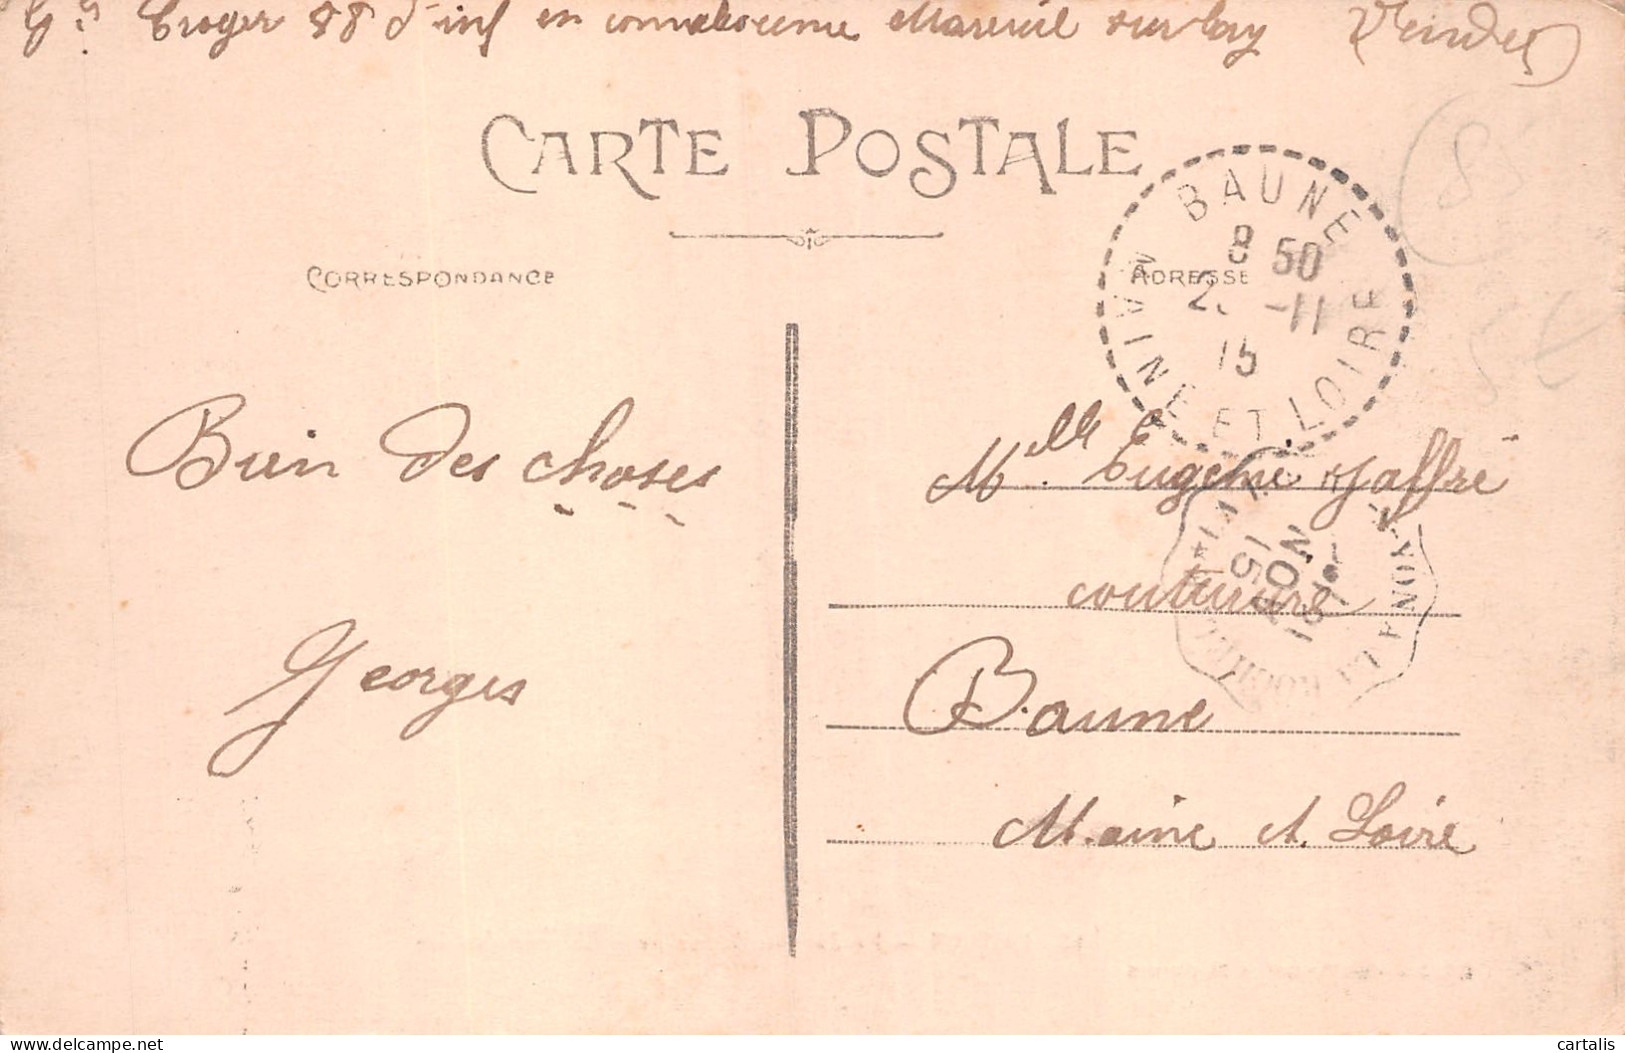 Gs Croger 88 d'inf en convalescence Mareuil sur lay Vendée
CARTE POSTALE
CORRESPONDANCE
ADRESSE
BAUNE
8 50
-11
15
MAINE ET LOIRE
85
5€
Bien des choses
Georges
Melle Eugénie Jaffré
couturière
Baune
Maine et Loire
cartalis
delcampe.net